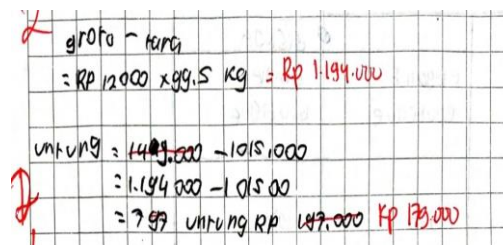 groto - tara
= RP 12000 x 99.5 kg = Rp 1.194.000
untung = 1449.000 - 1015.000
= 1.194 000 - 1 015 00
= 397 untung RP 197.000 Rp 179.000